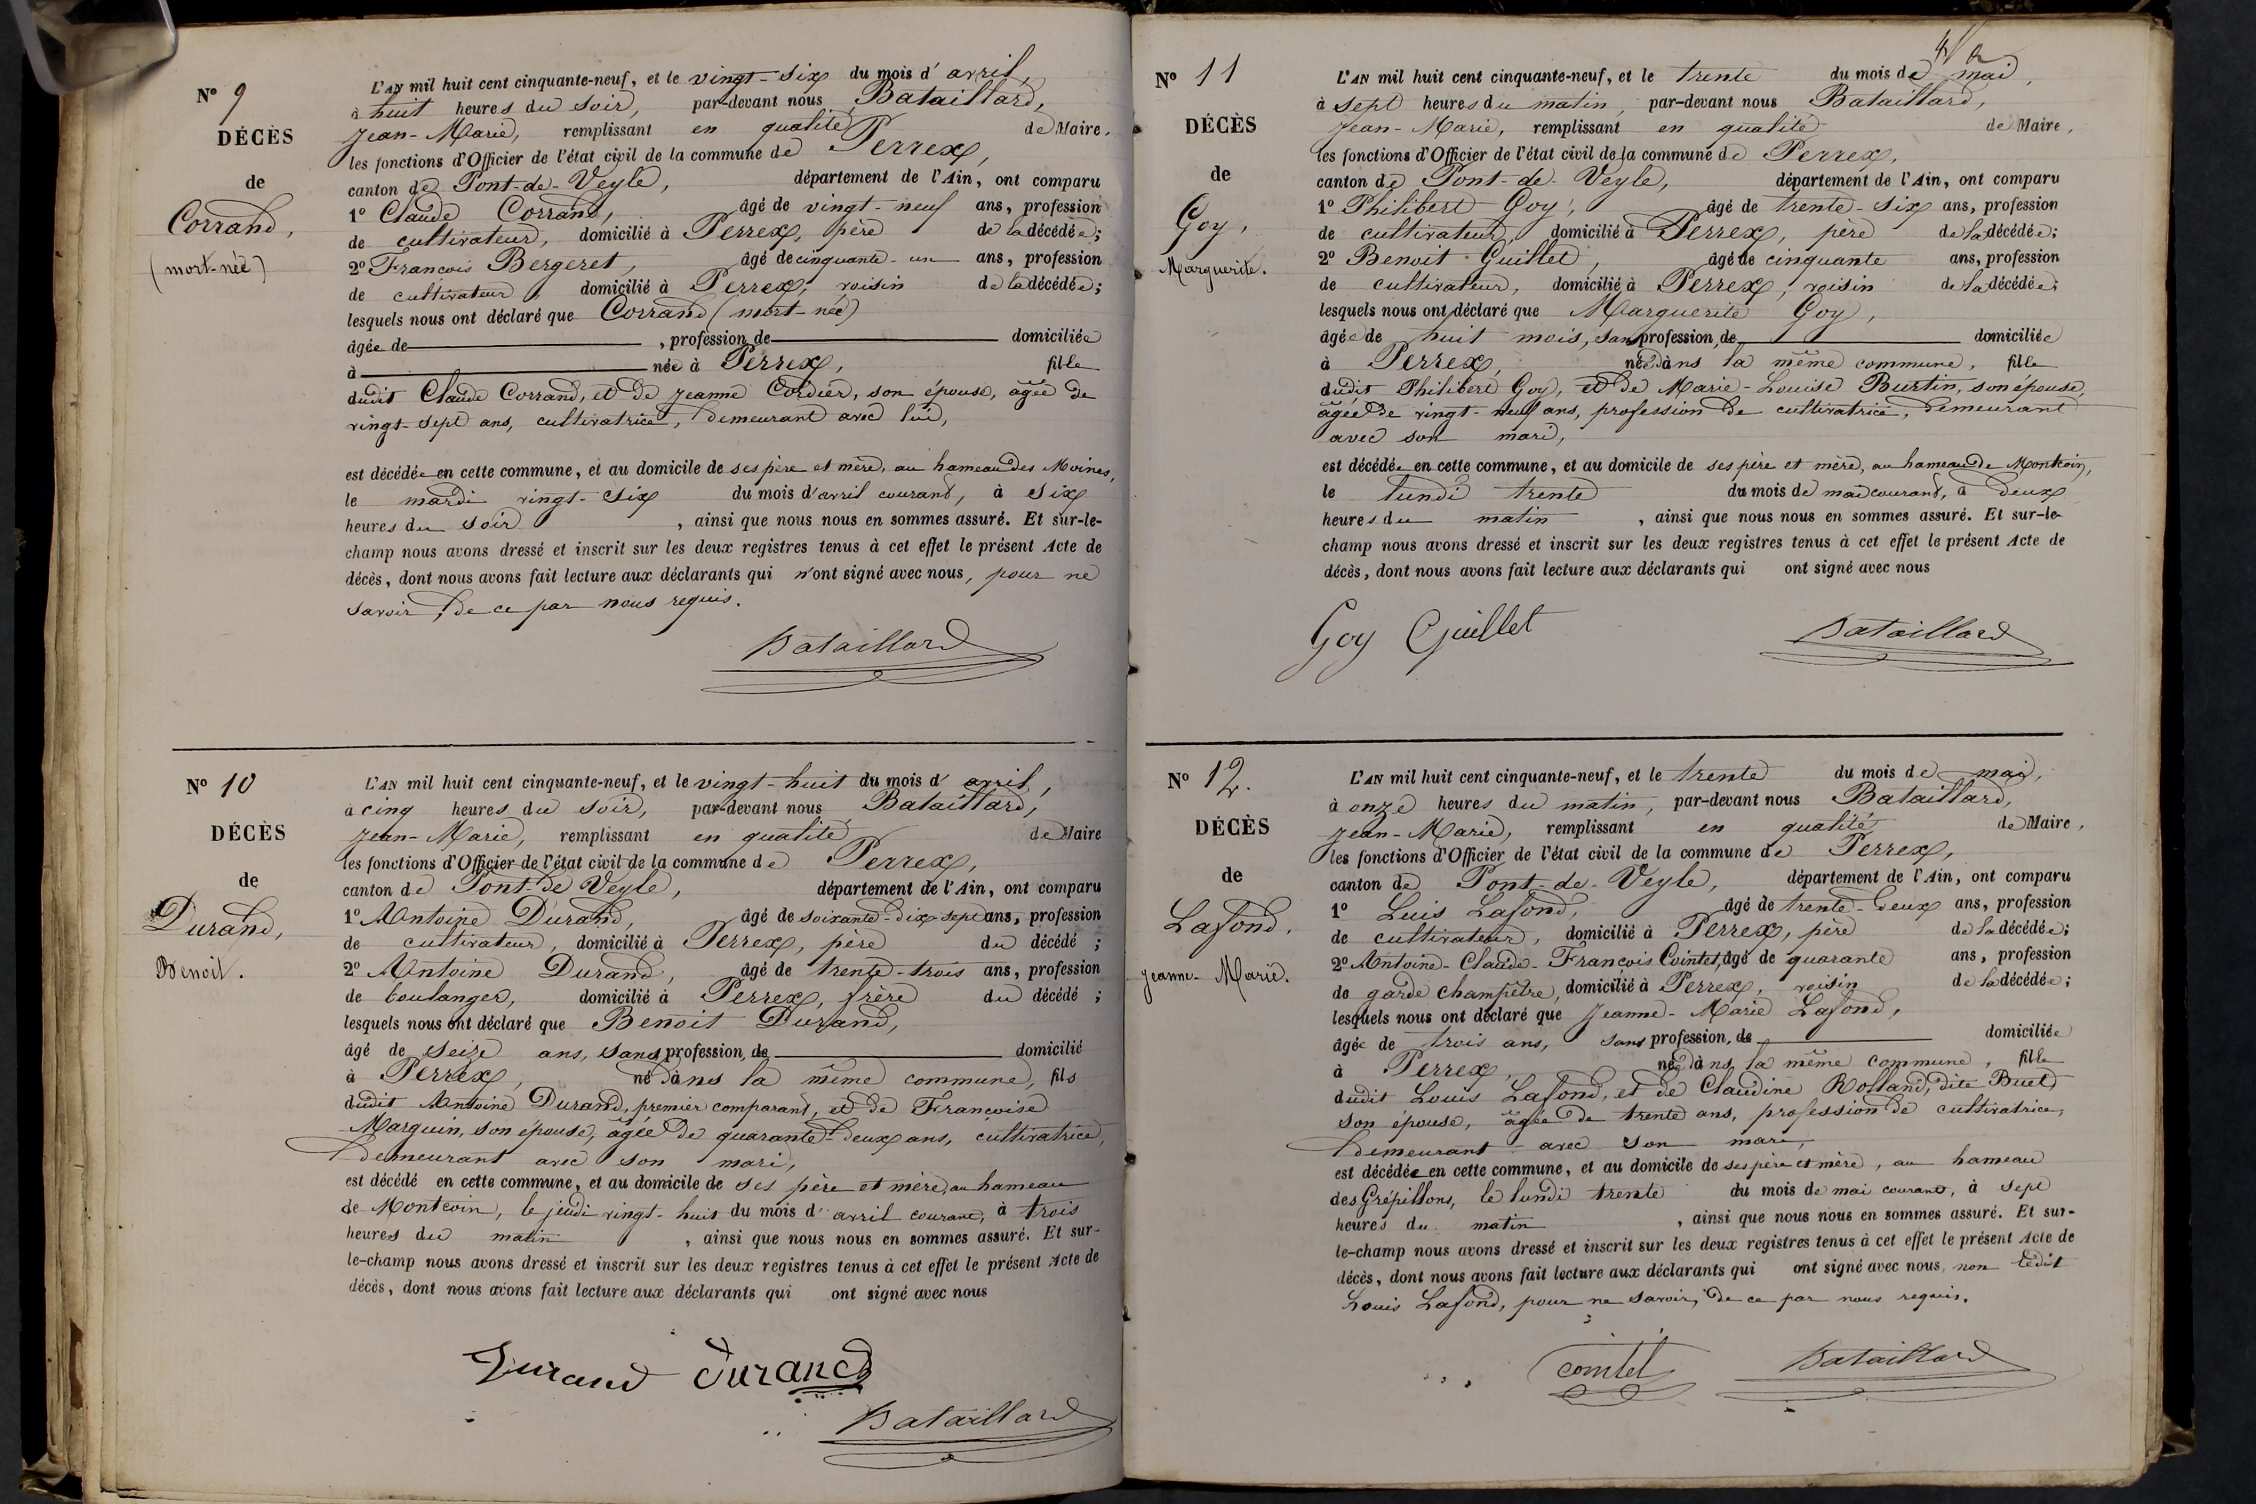 N° 9
DÉCÈS
de
Corrand,
(mort-née)
L'AN mil huit cent cinquante-neuf, et le vingt-six du mois d'avril,
à huit heures du soir, par-devant nous Bataillard,
Jean-Marie, remplissant en qualité de Maire,
les fonctions d'Officier de l'état civil de la commune de Perrex,
canton de Pont-de-Veyle, département de l'Ain, ont comparu
1° Claude Corrand, âgé de vingt-neuf ans, profession
de cultivateur, domicilié à Perrex, père de la décédée;
2° Francois Bergeret, âgé de cinquante-un ans, profession
de cultivateur, domicilié à Perrex, voisin de la décédée;
lesquels nous ont déclaré que Corrand (mort-née)
âgée de , profession de domiciliée
à née à Perrex, fille
dudit Claude Corrand, et de Jeanne Cordier, son épouse, âgée de
vingt-sept ans, cultivatrice, demeurant avec lui,
est décédée en cette commune, et au domicile de ses père et mère, au hameau des Moines,
le mardi vingt-six du mois d'avril courant, à six
heures du soir , ainsi que nous nous en sommes assuré. Et sur-le-
champ nous avons dressé et inscrit sur les deux registres tenus à cet effet le présent Acte de
décès, dont nous avons fait lecture aux déclarants qui n'ont signé avec nous, pour ne
savoir, de ce par nous requis.
Bataillard
N° 10
DÉCÈS
de
Durand,
Benoit.
L'AN mil huit cent cinquante-neuf, et le vingt-huit du mois d'avril,
à cinq heures du soir, par-devant nous Bataillard,
Jean-Marie, remplissant en qualité de Maire
les fonctions d'Officier de l'état civil de la commune de Perrex,
canton de Pont-de Veyle, département de l'Ain, ont comparu
1° Antoine Durand, âgé de soixante-dix-sept ans, profession
de cultivateur, domicilié à Perrex, père du décédé ;
2° Antoine Durand, âgé de trente-trois ans, profession
de boulanger, domicilié à Perrex, frère du décédé ;
lesquels nous ont déclaré que Benoit Durand,
âgé de seize ans, sans profession, de domicilié
à Perrex, né dans la même commune, fils
dudit Antoine Durand, premier comparant, et de Francoise
Marguin, son épouse, âgée de quarante-deux ans, cultivatrice,
demeurant avec son mari,
est décédé en cette commune, et au domicile de ses père et mère, au hameau
de Montcoin, le jeudi vingt-huit du mois d'avril courant, à trois
heures du matin , ainsi que nous nous en sommes assuré. Et sur-
le-champ nous avons dressé et inscrit sur les deux registres tenus à cet effet le présent Acte de
décès, dont nous avons fait lecture aux déclarants qui ont signé avec nous
Durand Durand
Bataillard
N° 11
DÉCÈS
de
Goy,
Marguerite.
L'AN mil huit cent cinquante-neuf, et le trente du mois de mai,
à sept heures du matin, par-devant nous Bataillard,
Jean-Marie, remplissant en qualité de Maire,
les fonctions d'Officier de l'état civil de la commune de Perrex,
canton de Pont-de-Veyle, département de l'Ain, ont comparu
1° Philibert Goy, âgé de trente-six ans, profession
de cultivateur, domicilié à Perrex, père de la décédée;
2° Benoit Guillet, âgé de cinquante ans, profession
de cultivateur, domicilié à Perrex, voisin de la décédée;
lesquels nous ont déclaré que Marguerite Goy,
âgée de huit mois, sans profession, de domiciliée
à Perrex, née dans la même commune, fille
dudit Philibert Goy, et de Marie-Louise Burtin, son épouse,
âgée de vingt-neuf ans, profession de cultivatrice, demeurant
avec son mari,
est décédée en cette commune, et au domicile de ses père et mère, au hameau de Montcoin,
le lundi trente du mois de mai courant, à deux
heures du matin , ainsi que nous nous en sommes assuré. Et sur-le-
champ nous avons dressé et inscrit sur les deux registres tenus à cet effet le présent Acte de
décès, dont nous avons fait lecture aux déclarants qui ont signé avec nous
Goy Guillet Bataillard
N° 12.
DÉCÈS
de
Lafond,
Jeanne-Marie.
L'AN mil huit cent cinquante-neuf, et le trente du mois de mai,
à onze heures du matin, par-devant nous Bataillard,
Jean-Marie, remplissant en qualité de Maire,
les fonctions d'Officier de l'état civil de la commune de Perrex,
canton de Pont-de-Veyle, département de l'Ain, ont comparu
1° Luis Lafond, âgé de trente-deux ans, profession
de cultivateur, domicilié à Perrex, père de la décédée;
2° Antoine-Claude-François Cointet, âgé de quarante ans, profession
de garde champêtre, domicilié à Perrex, voisin de la décédée;
lesquels nous ont déclaré que Jeanne-Marie Lafond,
âgée de trois ans, sans profession, de domiciliée
à Perrex, née dans la même commune, fille
dudit Louis Lafond, et de Claudine Rolland, dite Buet
son épouse, âgée de trente ans, profession de cultivatrice,
demeurant avec son mari,
est décédée en cette commune, et au domicile de ses père et mère, au hameau
des Grépillons, le lundi trente du mois de mai courant, à sept
heures du matin , ainsi que nous nous en sommes assuré. Et sur-
le-champ nous avons dressé et inscrit sur les deux registres tenus à cet effet le présent Acte de
décès, dont nous avons fait lecture aux déclarants qui ont signé avec nous, non ledit
Louis Lafond, pour ne savoir, de ce par nous requis.
Cointet Bataillard